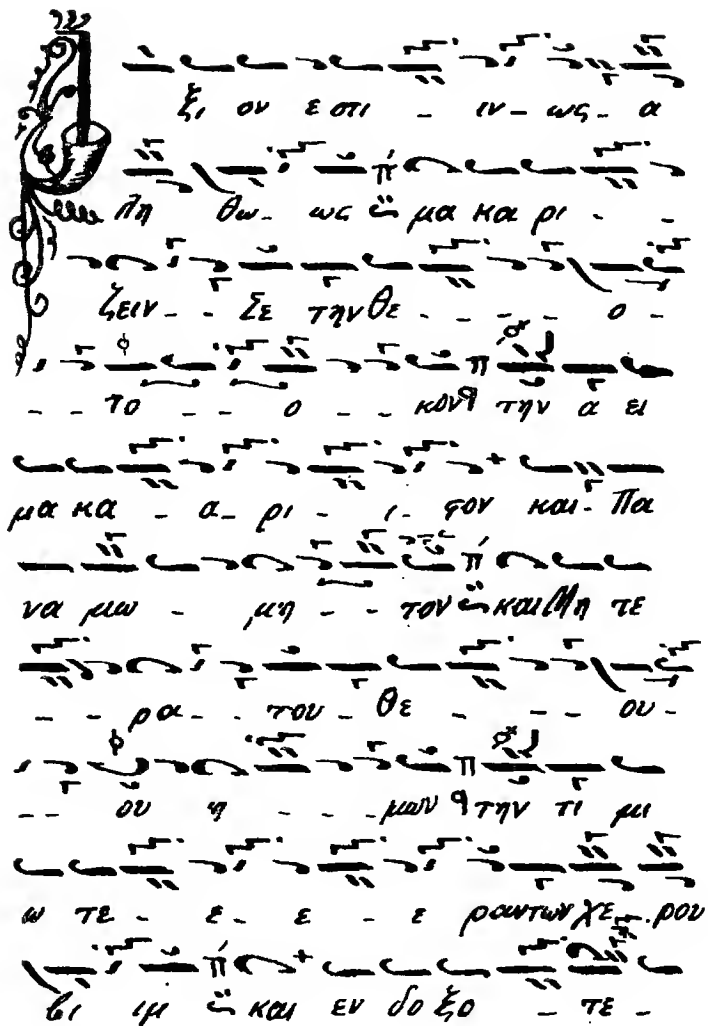 ξι ον εστι _ ιν_ ως_ α
λη θω_ ως μα κα ρι _ _
ζειν _ _ Σε την θε _ _ _ _ ο _
_ _ το _ _ ο _ _ κον την α ει
μα κα _ α_ ρι _ ι_ στον και_ Πα
να μω _ μη _ _ τον και Μη τε
_ _ ρα_ _ του_ θε _ _ _ ου_
_ _ ου η _ _ _ μων την τι μι
ω τε _ ε_ ε _ ε ραν των χε_ ρου
βι ιμ και εν δο ξο _ τε_